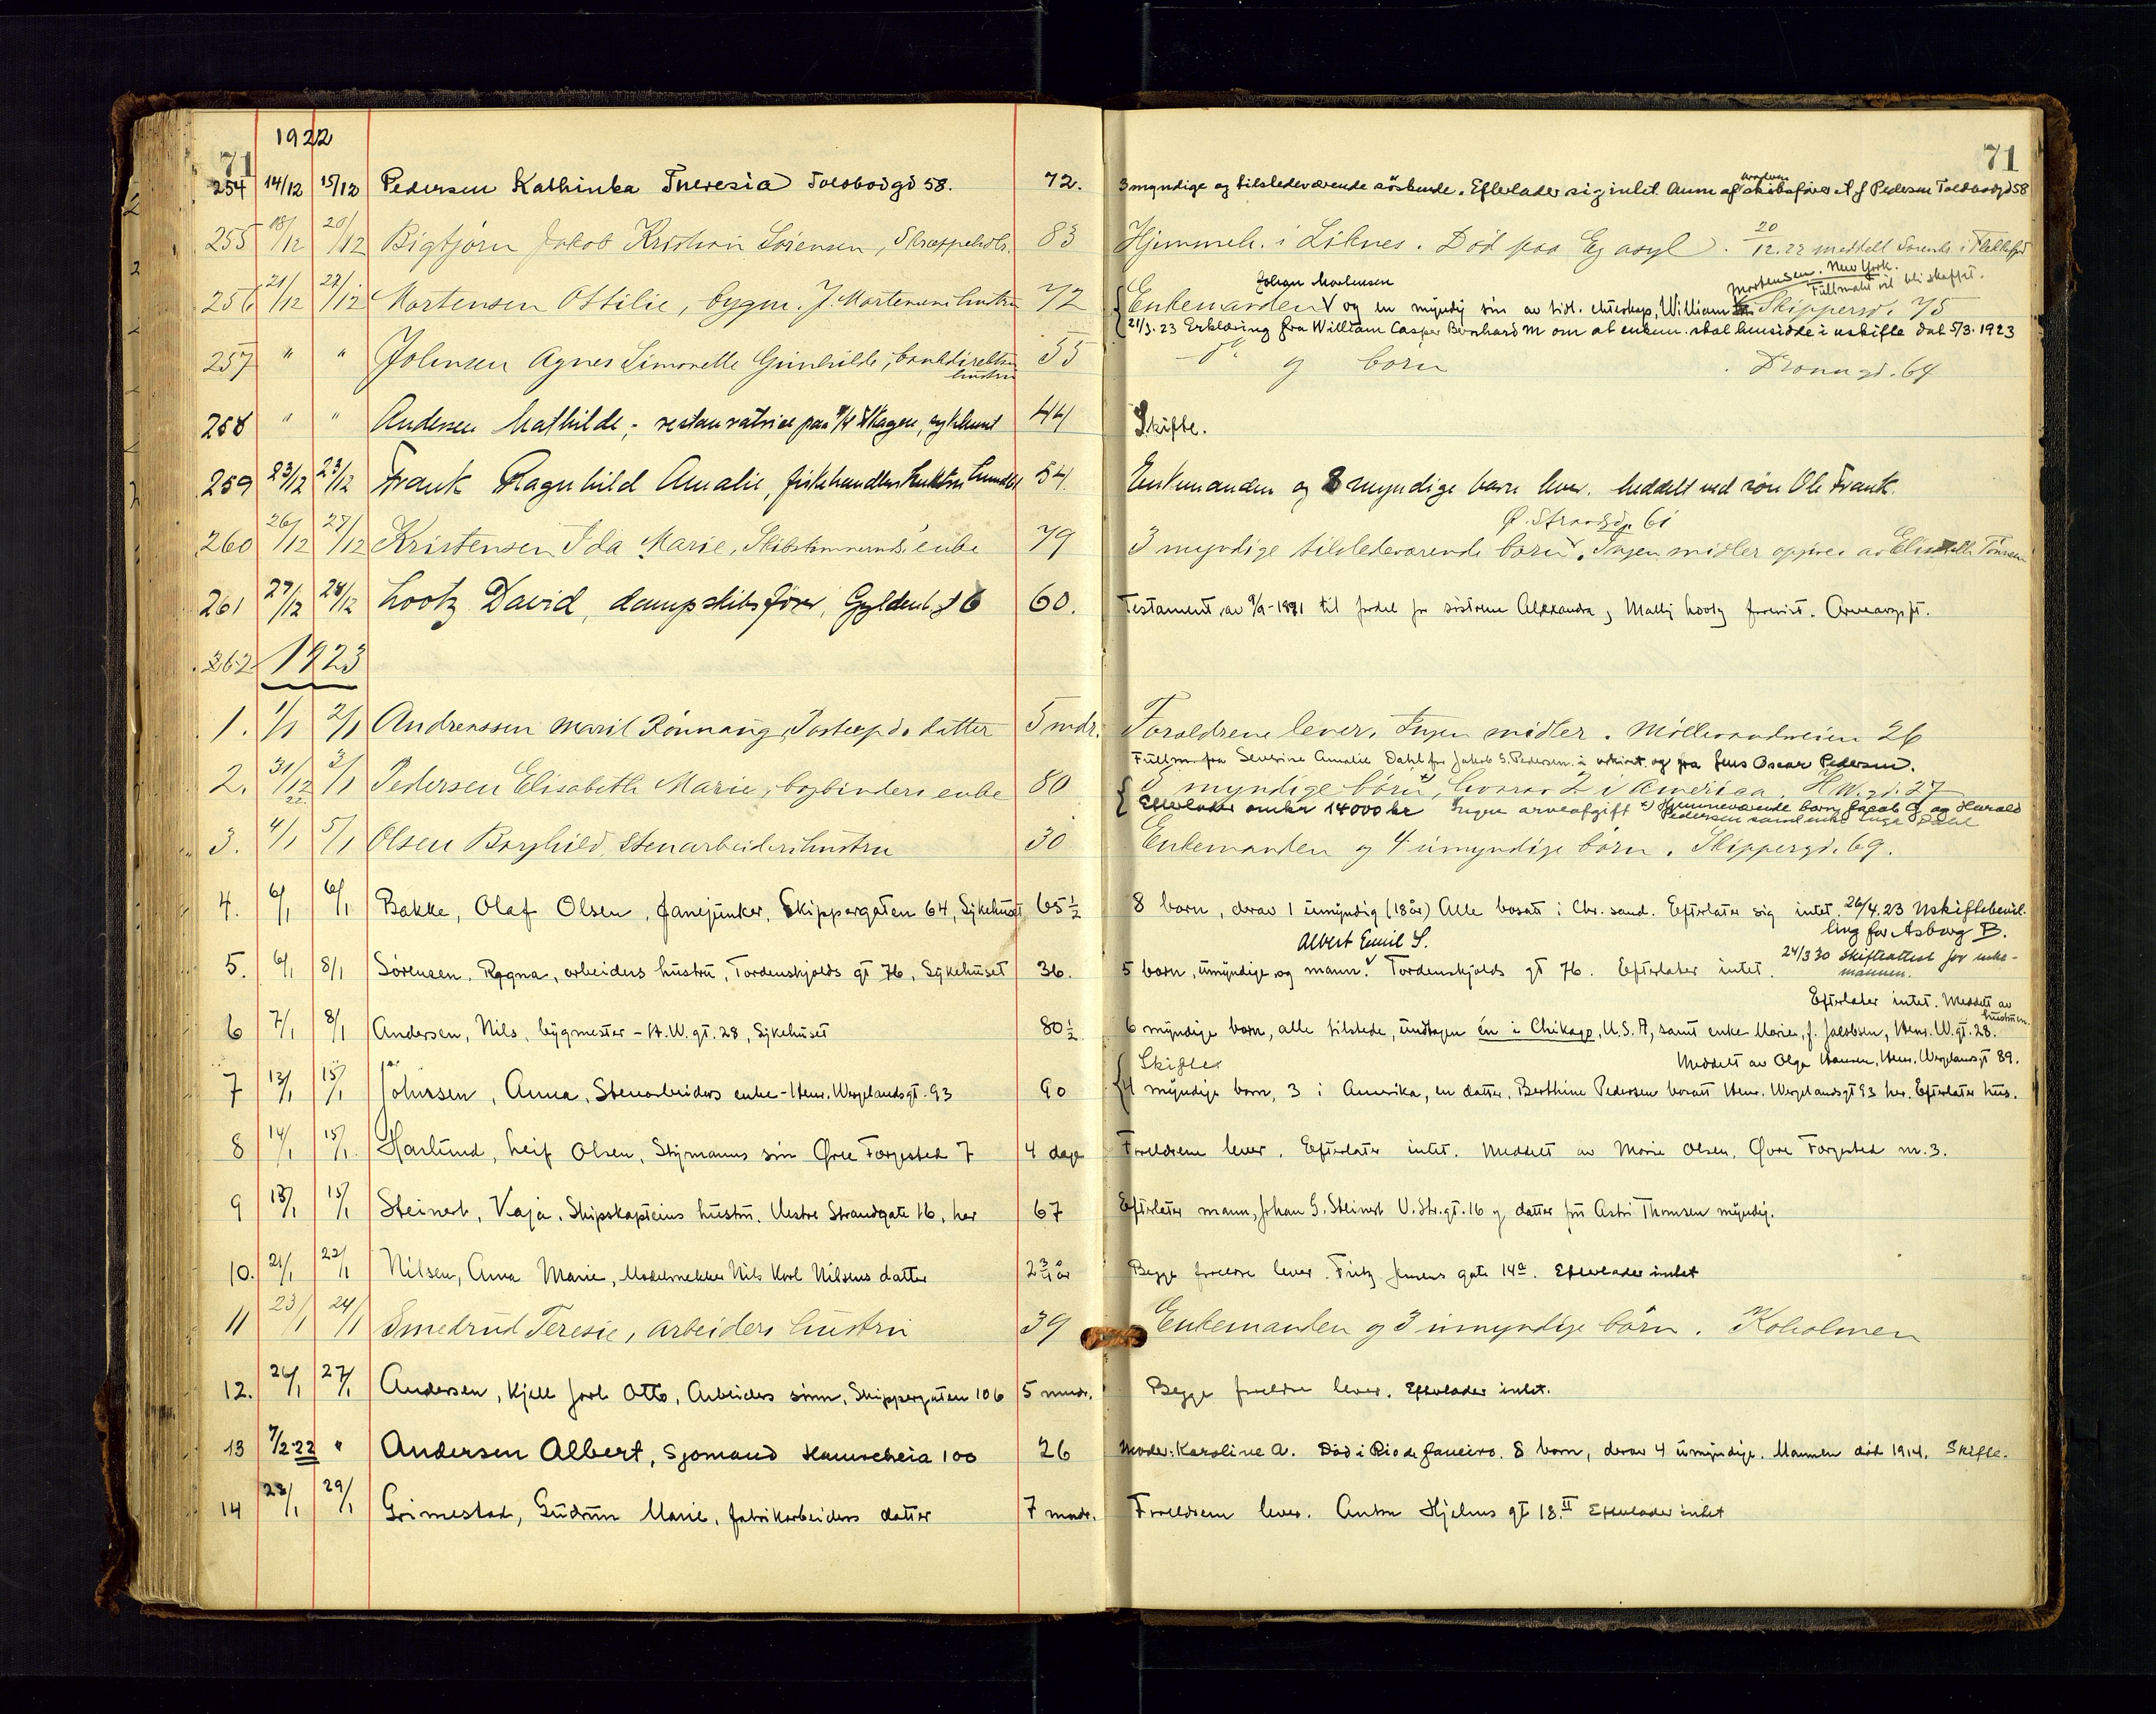 1922
71
71
254 14/12 15/12 Pedersen Kathinka Theresia Toldbodgd 58. 72. 3 myndige og tilstedeværende söskende. Efterlader sig intet. Anm af broderen skibsfører A J Pedersen Toldbodgd 58
255 18/12 20/12 Bigtjørn Jakob Kristian Sørensen, 83 Hjemmeh. i Liknes. Død paa Eg asyl. 20/12.22 meddelt Sorensk. i Flekkefjord
Johan Mortensen Mortensen. New York. Fullmakt vil bli skaffet.
256 21/12 22/12 Mortensen Ottilie, bygm. J. Mortensens hustru 72 Enkemanden V og en myndig søn av tidl. ekteskap, William Skippergd. 75
21/3.23 Erklæring fra William Casper Bernhard M om at enkem. skal hensidde i uskifte dat 5/3.1923
257 " " Johnsen Agnes Simonette Gunhilde, bankdirektør hustru 55 og børn Dronn gd. 64
258 " " Andersen Mathilde, restauratrice paa Skagen, sykehuset 44 Skifte.
259 23/12 23/12 Frank Ragnhild Amalie, fiskehandler hustru 54 Enkemanden og 8 myndige barn lever. Meddelt ved søn Ole Frank.
Ø. Strandgd. 61
260 26/12 27/12 Kristensen Ida Marie, Skibstømmermds enke 79 3 myndige tilstedeværende børn. Ingen midler opgives av Elisabeth Tønnesen
261 27/12 28/12 Lootz David, dampskibsfører, Gyldenl. g 6 60. Testament av 9/9-1891 til fordel for søstrene Alexandra og Mally Lootz forevist. Arveavgift.
262 1923
1. 1/1 2/1 Andreassen Marit Rönnaug, Postexpd. datter 5 mdr. Forældrene lever. Ingen midler. Møllevandveien 26
Fullm. fra Severine Amalie Dahl for Jakob S. Pedersen og fra Jens Oscar Pedersen.
2. 31/12 22. 3/1 Pedersen Elisabeth Marie, bogbinders enke 80 myndige børn, hvorav 2 i Amerika. H.W. gd. 27
Efterlader omkr 14000 kr Ingen arveafgift Hjemmeværende barn Jacob G og Harald Pedersen samt enke Inga Dahl
3. 4/1 5/1 Olsen Borghild, Stenarbeiders hustru 30 Enkemanden og 4 umyndige børn. Skippergd. 69.
4. 6/1 6/1 Bakke, Olaf Olsen, fanejunker, Skippergaten 64, Sykehuset 65½ 8 barn, derav 1 umyndig (18 år) Alle bosatt i Chr. sand. Efterlater sig intet. 26/4.23 Uskiftebevil-
ling for Asborg B.
Albert Emil S.
5. 6/1 8/1 Sørensen, Ragna, arbeiders hustru, Tordenskjolds gt 76, Sykehuset 36. 5 barn, umyndige og mann. V Tordenskjolds gt 76. Efterlater intet. 24/3 30 Skifteattest for enke-
mannen.
Efterlater intet. Meddelt av hustruen.
6 7/1 8/1 Andersen, Nils, bygmester - H.W. gt. 28, Sykehuset 80½ 6 myndige barn, alle tilstede, undtagen én i Chikago, U.S.A, samt enke Marie, f. Jakobsen, Henr. W. gt. 28.
Skifte. Meddelt av Olga Hansen, Henr. Wergelandsgt 89.
7 13/1 15/1 Johnsen, Anna, Stenarbeiders enke - Henr. Wergelandsgt. 93 90 4 myndige barn, 3 i Amerika, en datter, Berthine Pedersen bosatt Henr. Wergelandsgt 93 her. Efterlater hus.
8 14/1 15/1 Haslund, Leif Olsen, Styrmanns søn Øvre Torjested 7 4 dage Foreldrene lever. Efterlater intet. Meddelt av Marie Olsen, Øvre Torjested nr. 3.
9 13/1 15/1 Steinert, Kaja, Skipskapteins hustru, Vestre Strandgate 16, her 67 Efterlater mann, Johan G. Steinert V. Str. gt. 16 og datter fru Astri Thomsen myndig.
10. 21/1 22/1 Nilsen, Anna Marie, Modelsnekker Nils Karl Nilsens datter 2¾ år Begge foreldre lever. Fritz Jensens gate 14a. Efterlader intet
11 23/1 24/1 Smedrud Teresie, arbeiders hustru 39 Enkemanden og 3 umyndige børn. Koholmen
12. 26/1 27/1 Andersen, Kjell Jarl Otto, Arbeiders sønn, Skippergaten 106 5 mndr. Begge foreldre lever. Efterlader intet.
13 7/2-22 " Andersen Albert, Sjømand Hamreheia 100 26 Moder: Karoline A. Död i Rio de Janeiro. 8 barn, derav 4 umyndige. Mannen död 1914. Skifte.
14 28/1 29/1 Grimestad, Gudrun Marie, fabrikarbeiders datter 7 mndr. Foreldrene lever. Anton Hjelms gt 18. II Efterlader intet